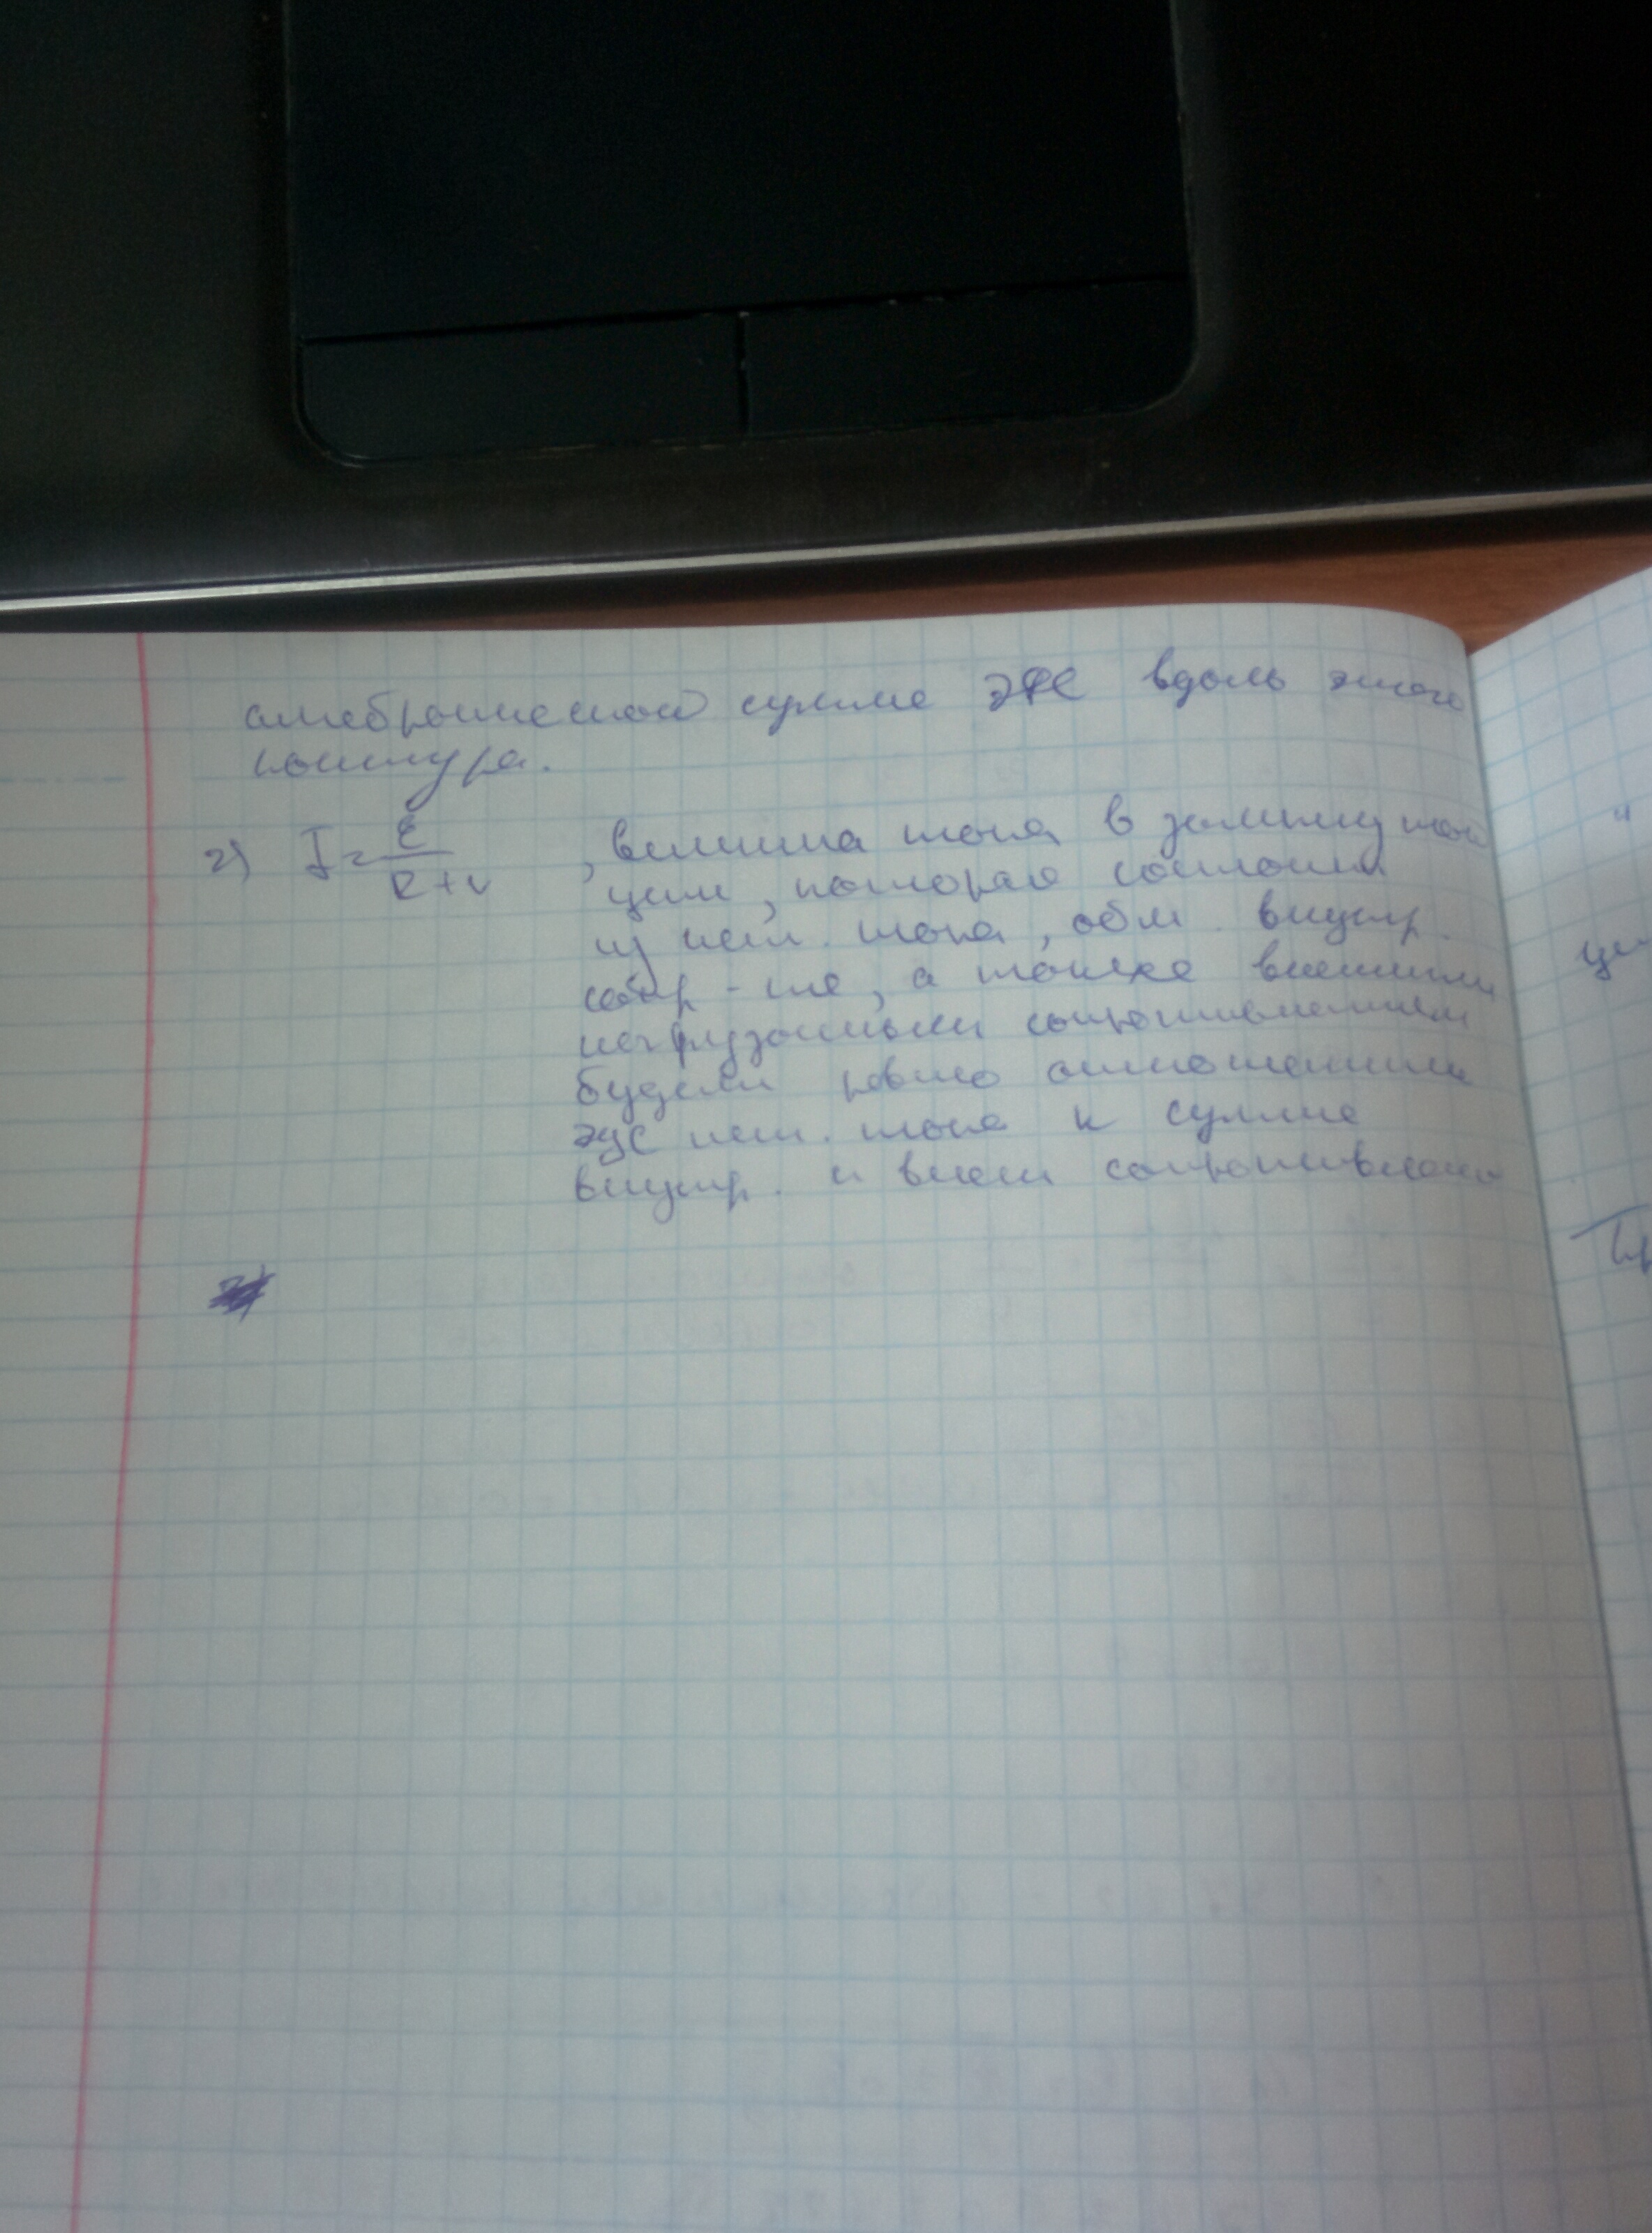 алгебраической сумме ЭДС вдоль этого
контура.
2) I = ε / R + r , величина тока в замкнутой
цепи, которая состоит
из ист. тока, обл. внутр.
сопр-ие, а также внешним
нагрузочным сопротивлением
будет равно отношению
ЭДС ист. тока к сумме
внутр. и внеш сопротивлени